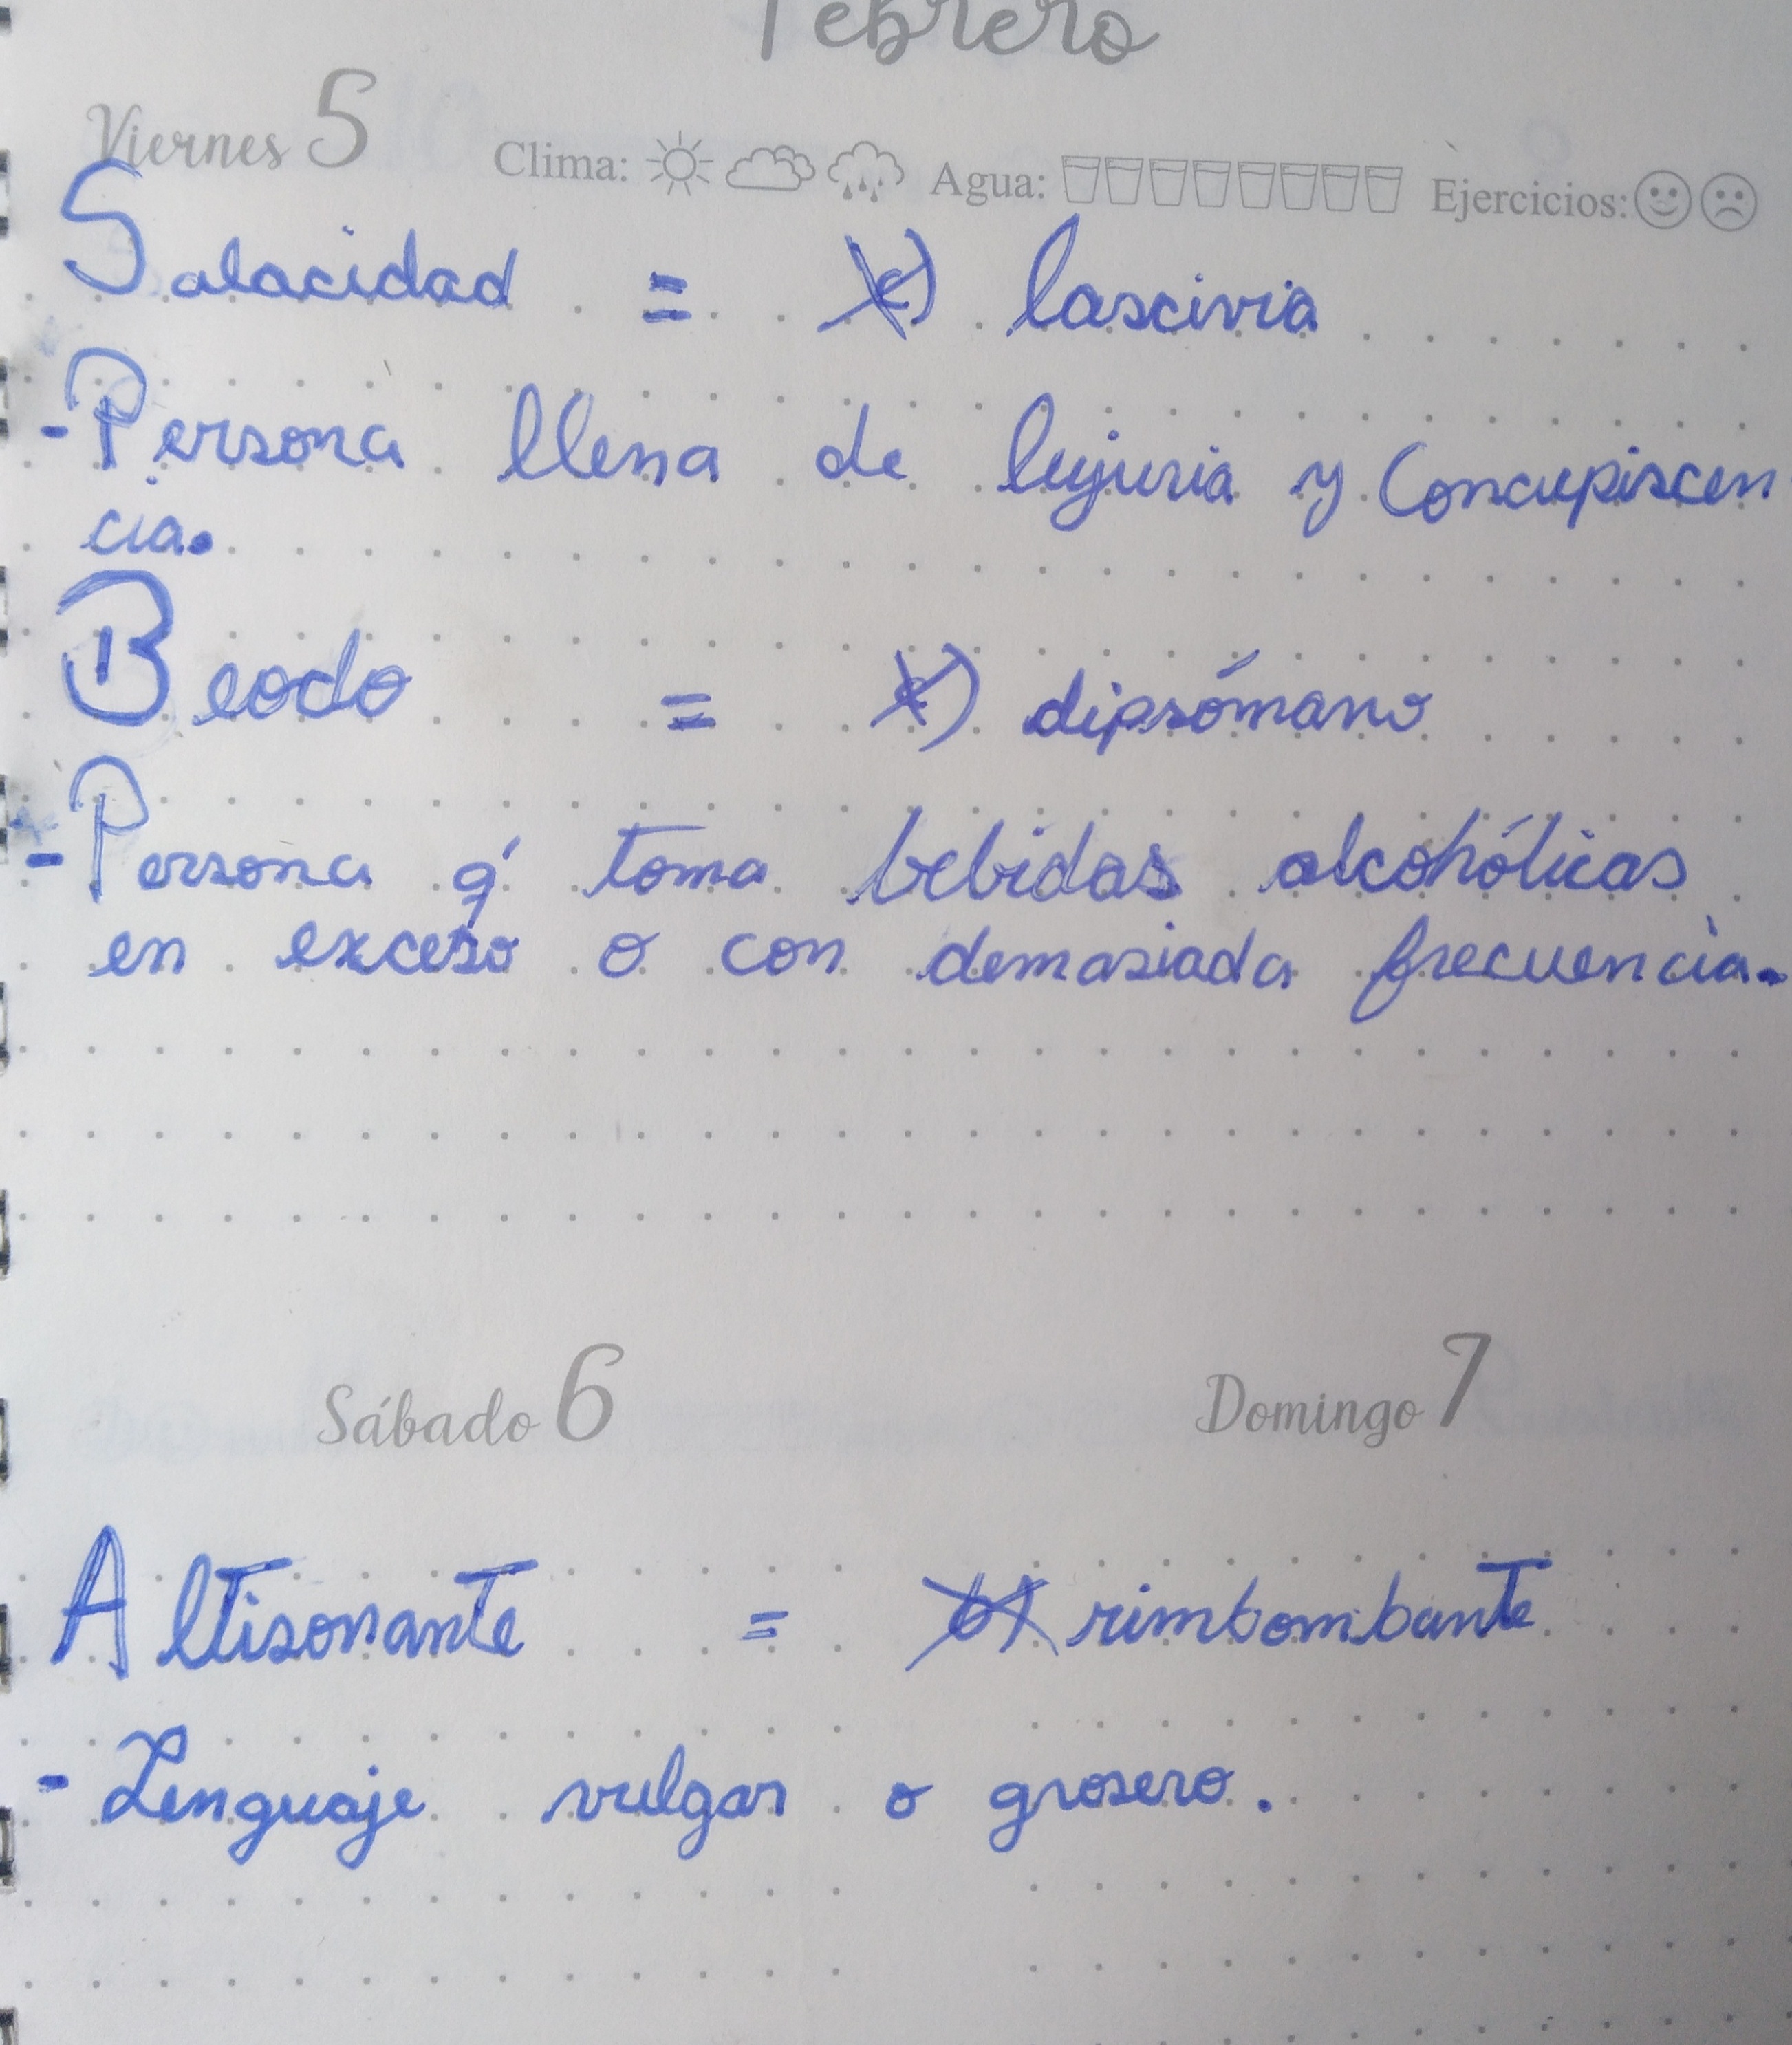 Febrero
Viernes 5 Clima: Agua: Ejercicios:
Salacidad = c) lascivia
- Persona llena de lujuria y Concupiscen
cia.
Beodo = c) dipsómano
- Persona q' toma bebidas alcohólicas
en exceso o con demasiada frecuencia.
Sábado 6 Domingo 7
Altisonante = b) rimbombante
- Lenguaje vulgar o grosero.